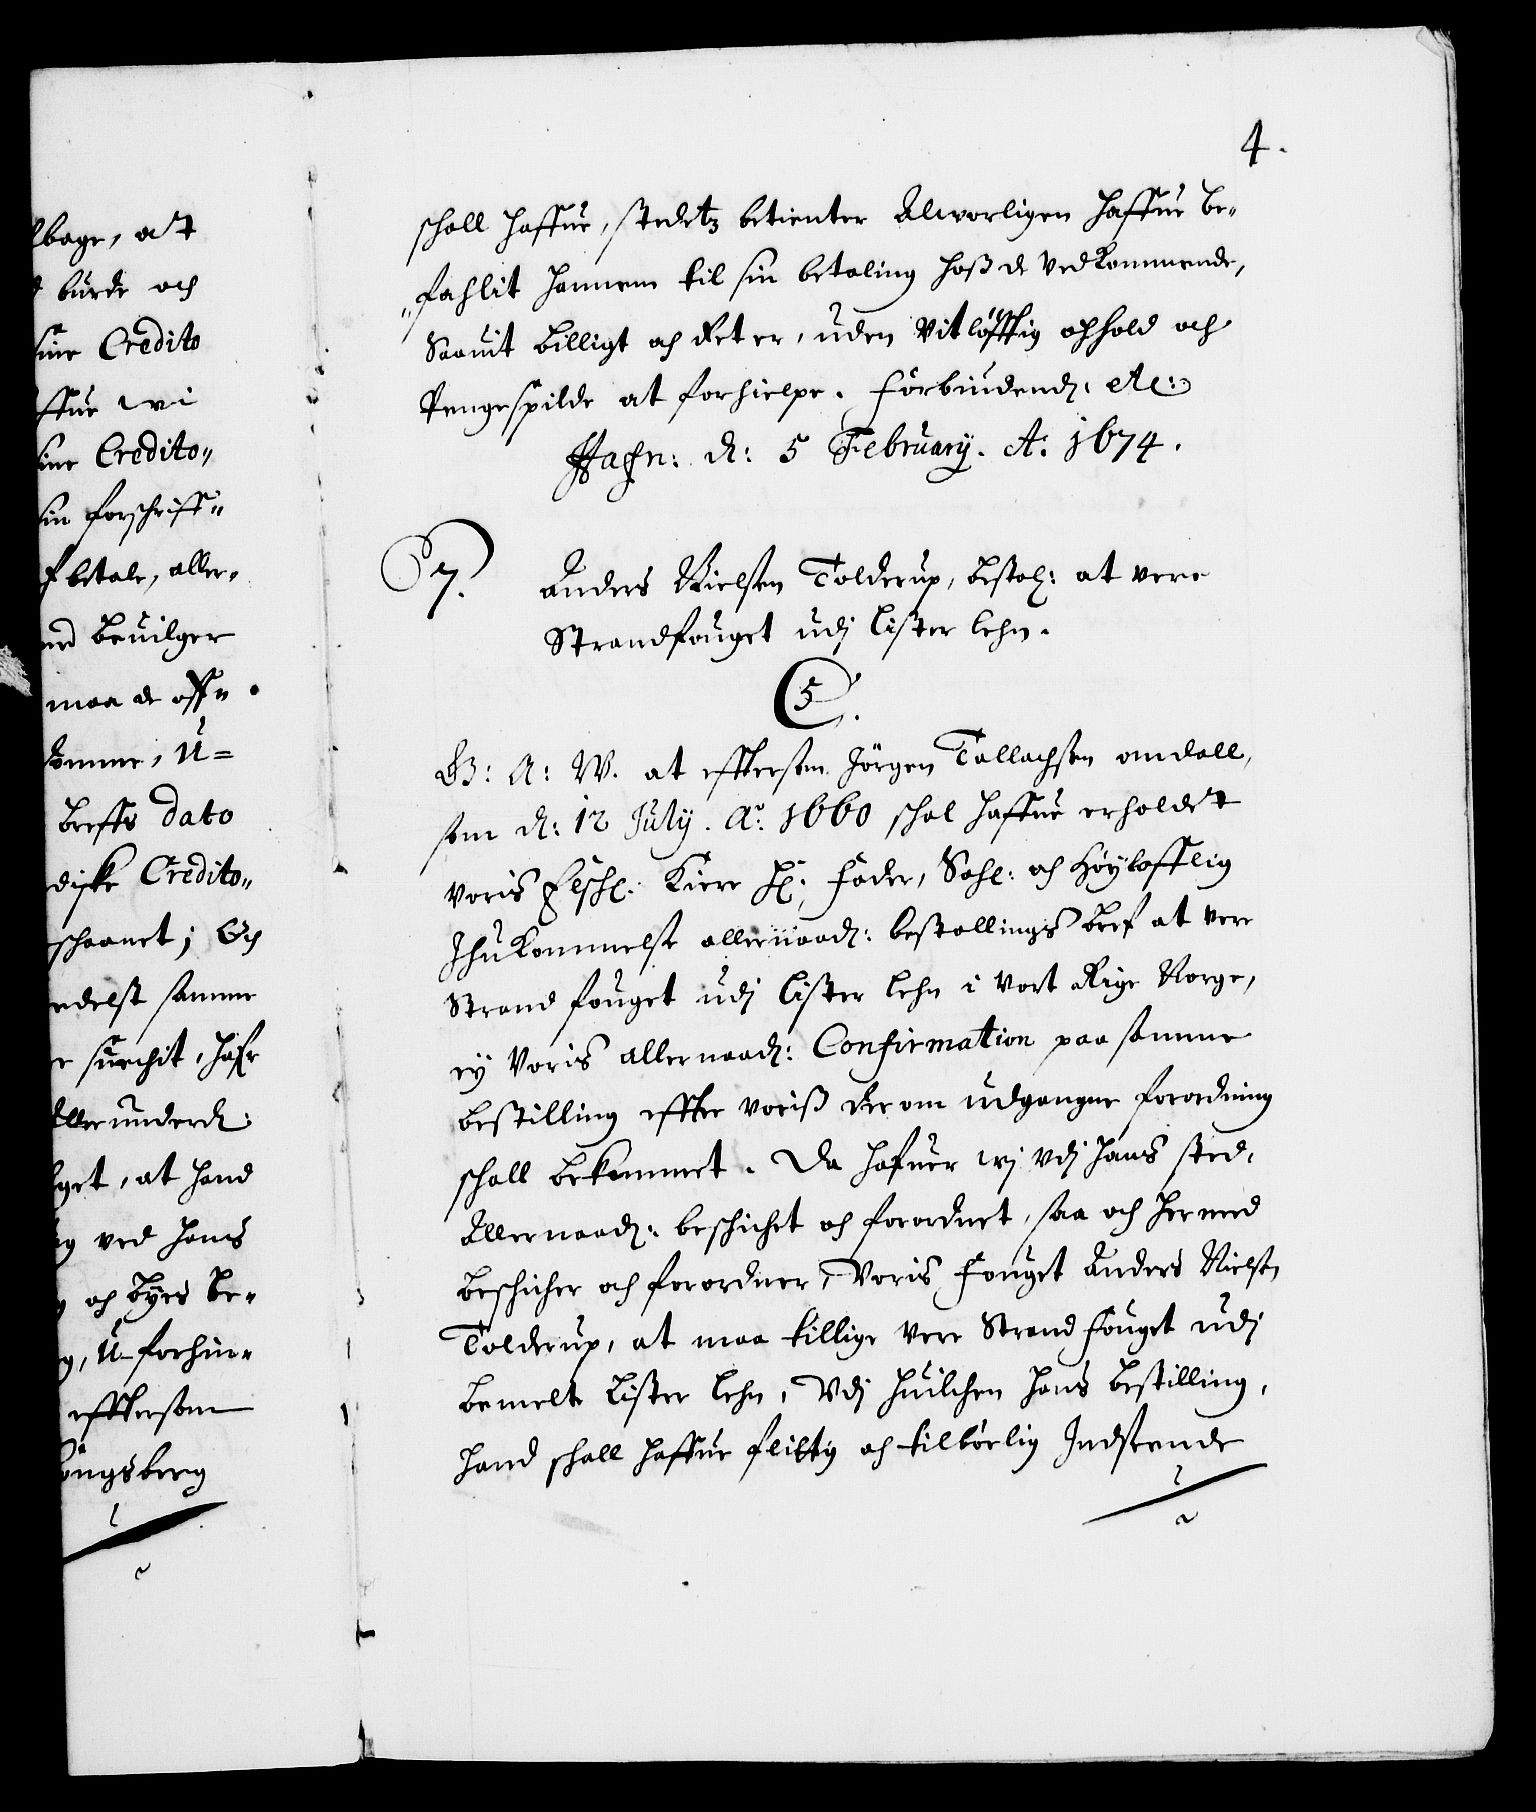 lbage, at
burde och
sine Credito
ffue wi
sine Credito„
sin forschriff„
betale, aller„
med beuilger
maa de eff„
komme, U=
breffs dato
diske Credito„
schaanet; Och
edelst samme
surchit, hafr
Allerunderd:
get, at hand
ved hans
och byes be„
U-forhin„
effttersom
ongsberg
4.
schall haffue, stedetz betienter Alworligen haffue be„
„fahlit hannem til sin betaling hoß de vedkommende,
Saauit billigt och Ret er, uden vitlöfftig ophold och
Pengespilde at forhielpe. Forbiudend: etc:
Hafn: d: 5 February. A: 1674.
7. Anders Nielsen Tolderup, bestal: at vere
Strandfouget udj Lister Lehn.
5.
G: A: W. at efftersom Jörgen Tallachsen omdall,
som d: 12 July. Ao: 1660 schal haffue erholdet
voris Elschl: Kiere Hr: Fader, Sahl: och Höylofflig
Ihukommelse allernaad: bestallings bref at vere
Strandfouget udj Lister Lehn i vort Rige Norge,
ey voris allernaad: Confirmation paa samme
bestilling effter voriß der om udgangne forordning
schall bekommet. Da hafuer wj vdj hans sted,
Allernaad: beschichet och forordnet, saa och hermed
beschicher och forordner, Voris Fouget Anders Nielsen
Tolderup, at maa tillige vere Strandfouget udj
bemelte Lister Lehn, Vdj huilchen hans bestilling,
hand schall haffue flittig och tilbörlig Indseende